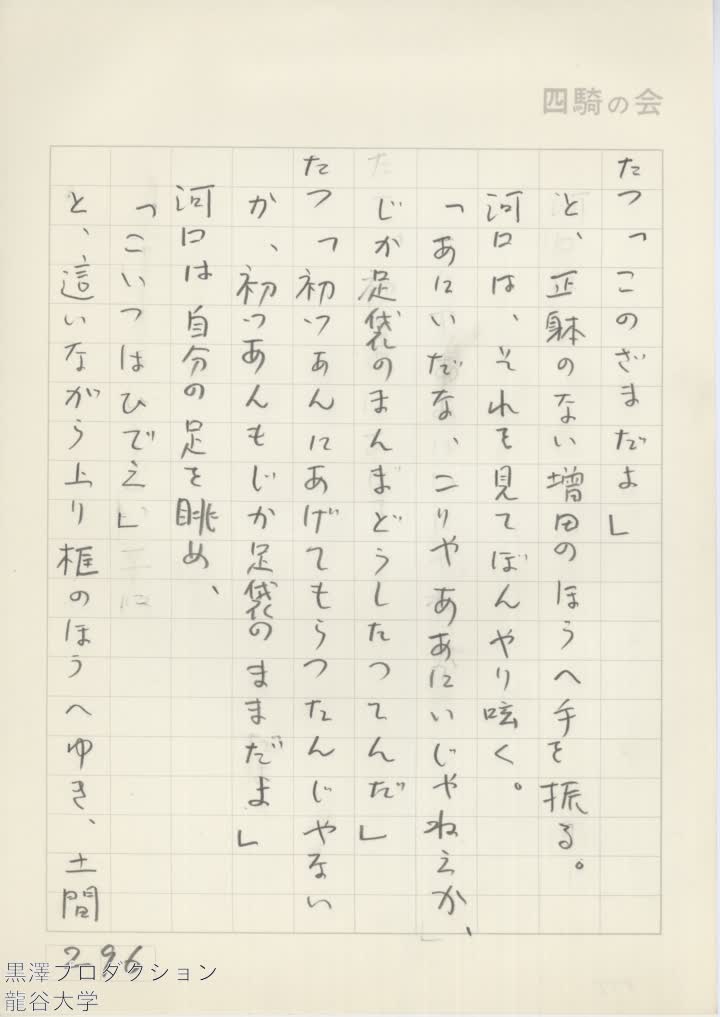 四騎の会
たつ「このざまだよ」
と、正躰のない増田のほうへ手を振る。
河口は、それを見てぼんやり呟く。
「あにいだな、こりやああにいじやねえか、
じか足袋のまんまどうしたつてんだ」
たつ「初つあんにあげてもらつたんじやない
か、初つあんもじか足袋のままだよ」
河口は自分の足を眺め、
「こいつはひでえ」
と、這いながら上り框のほうへゆき、土間
296
黒澤プロダクション
龍谷大学